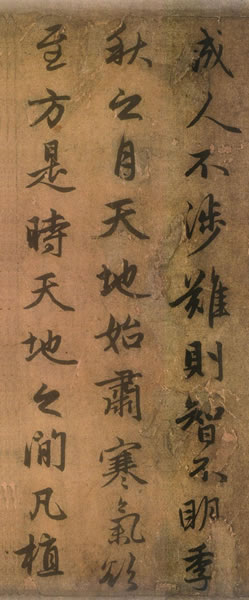 成人不涉難則智不明季
秋之月天地始肅寒氣欲
至方是時天地之間凡植